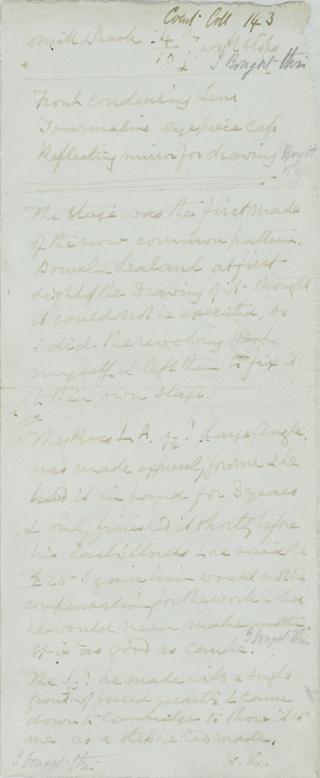 Court. Coll 143
Smith & Beck 4/10 in with stops
I Bought this
Front condensing Lens
Tourmaline eyepiece cap
Reflecting mirror for drawing Bought
The Stage was the first made
of the now common pattern.
Powel & Lealand at first
sight of the Drawing of it thought
it could not be executed, so
I did the revolving
myself & left them to fix it
their own stage.
The Ross L. A. 1/12 in Large Angle
was made expressly for me & he
had it in hand for 3 years
& only finished it shortly before
his last illness & he said the
£25 I gave him would not be
compensation for the work & that
he would never make another.
It is as good as can be.
I bought this
The he made with a single
front of fused quartz & came
down to Cambridge to show it to
me as a step he had made.
I bought this